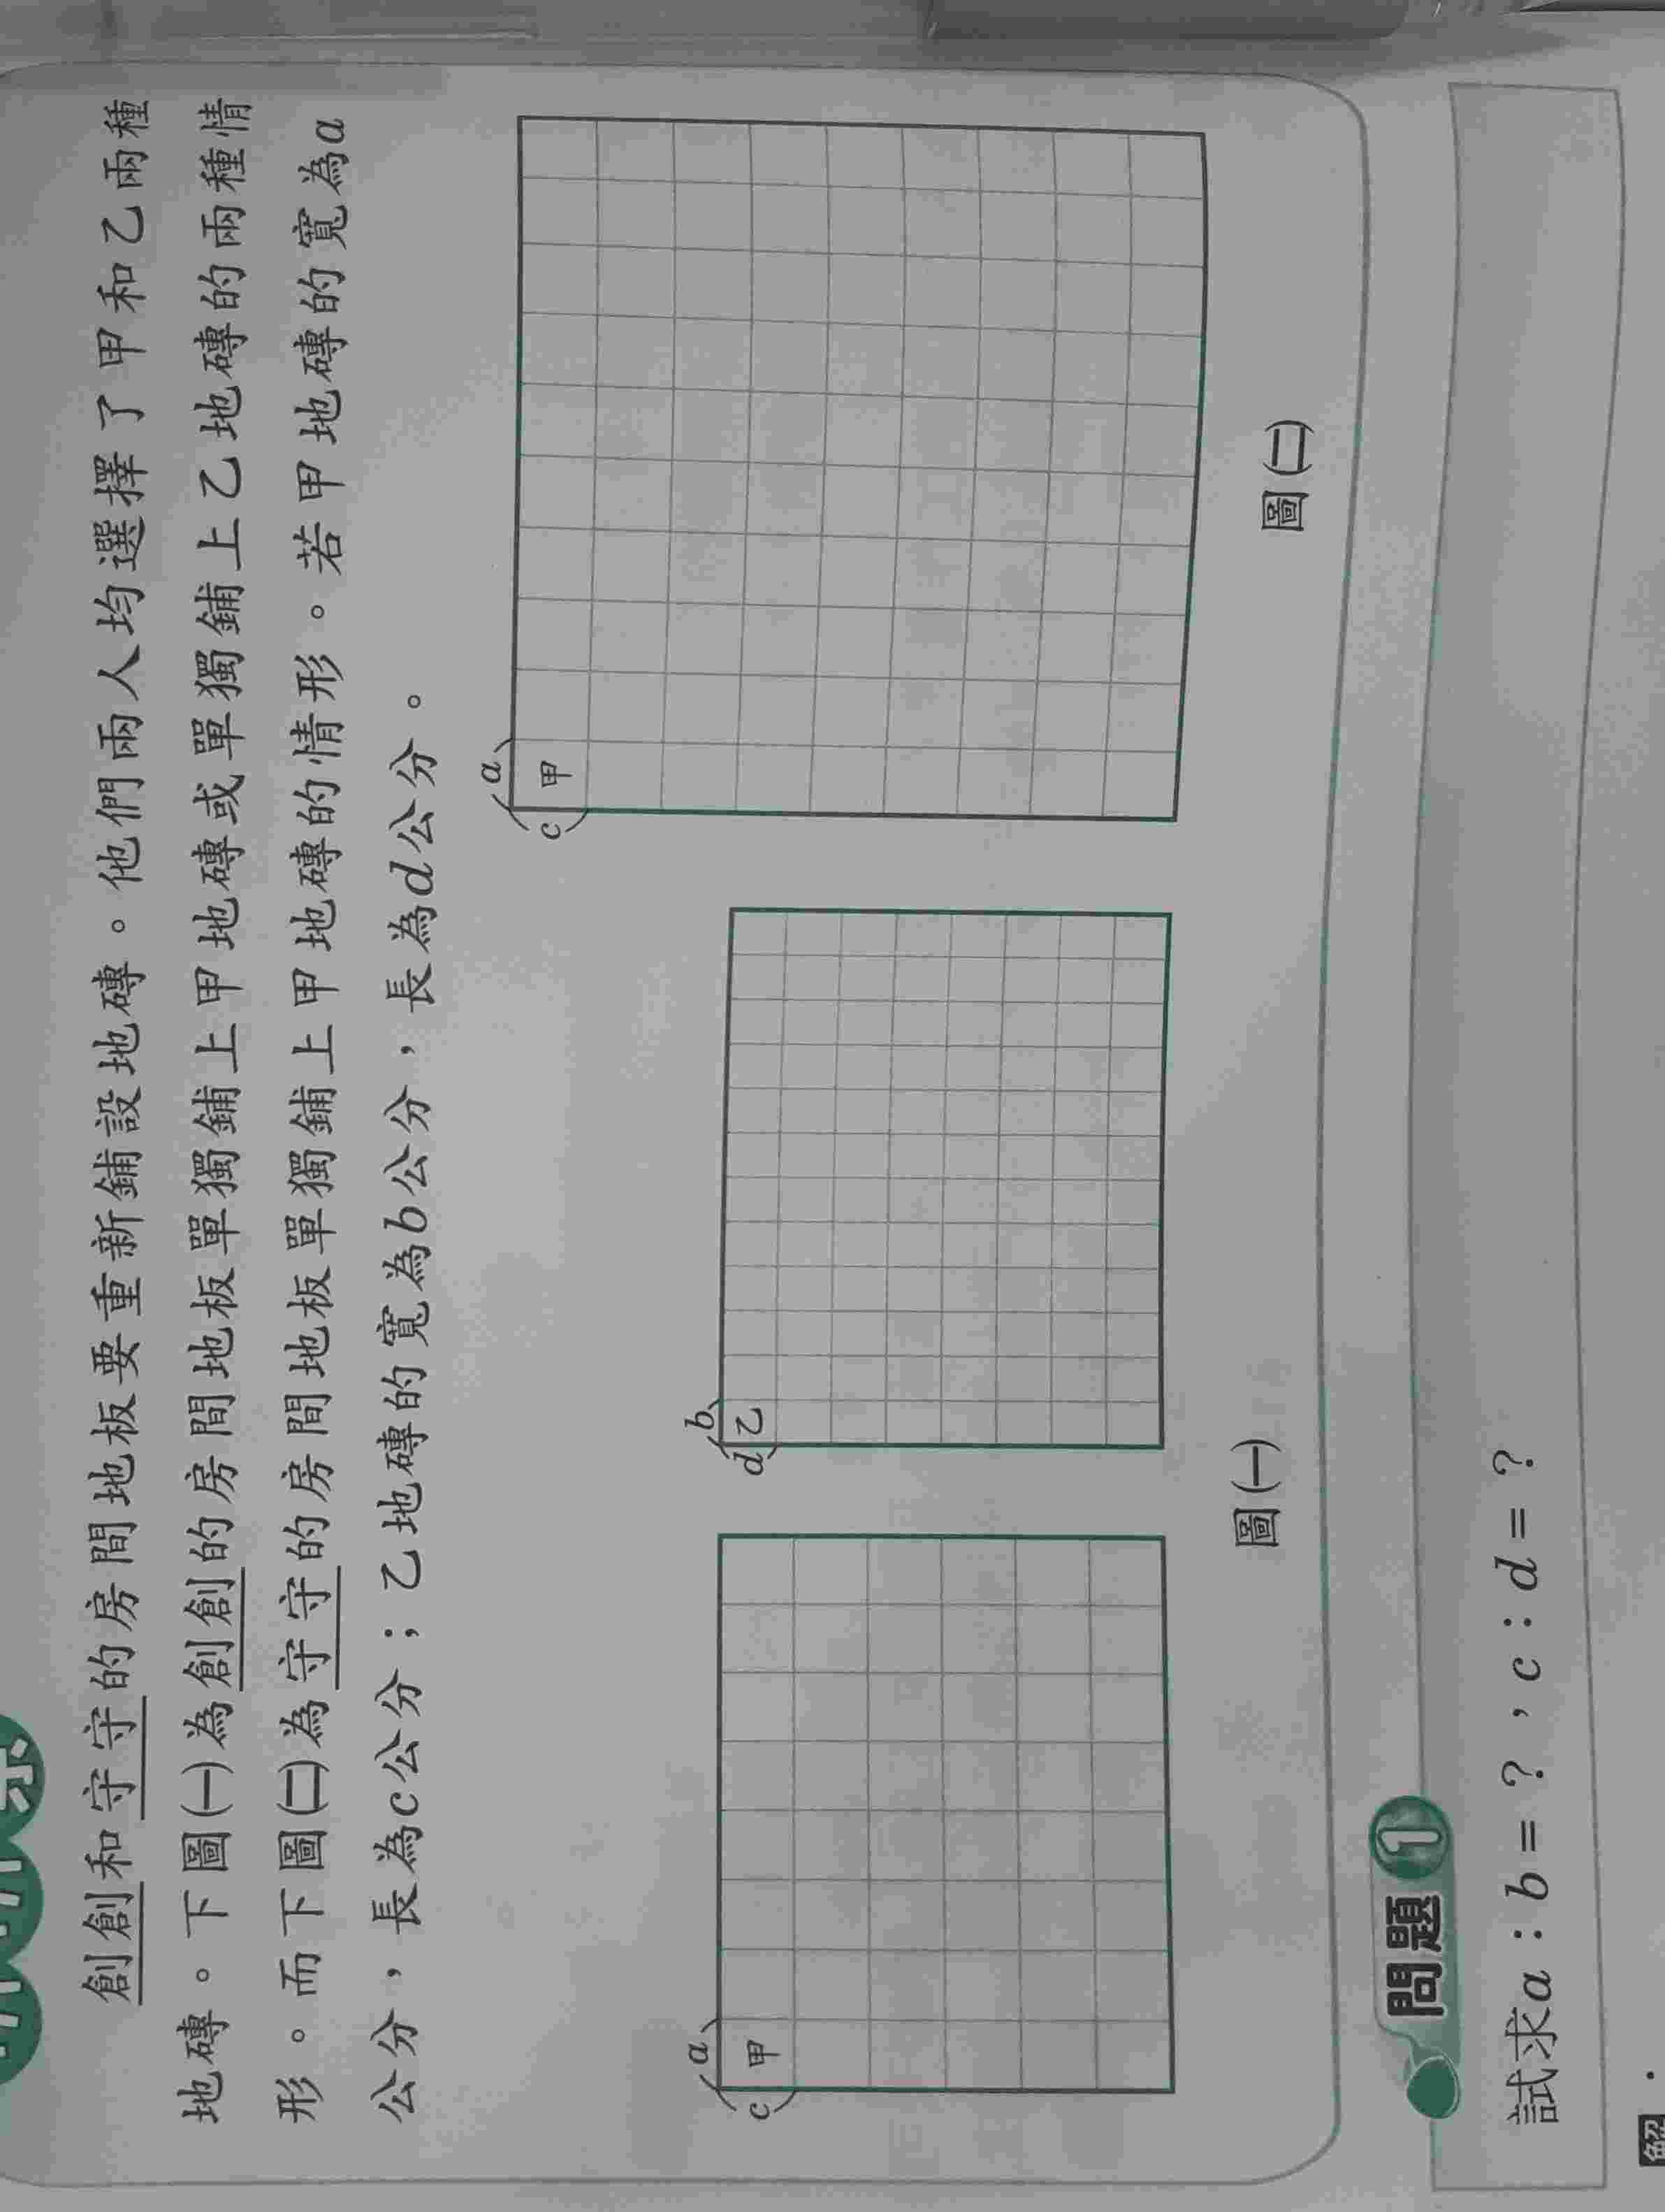 創創和守守的房間地板要重新鋪設地磚。他們兩人均選擇了甲和乙兩種
地磚。下圖(一)為創創的房間地板單獨鋪上甲地磚或單獨鋪上乙地磚的兩種情
形。而下圖(二)為守守的房間地板單獨鋪上甲地磚的情形。若甲地磚的寬為a
公分,長為c公分;乙地磚的寬為b公分,長為d公分。
a
c
甲
b
d
乙
a
c
甲
圖(一)
圖(二)
問題1
試求a:b=?,c:d=?
解